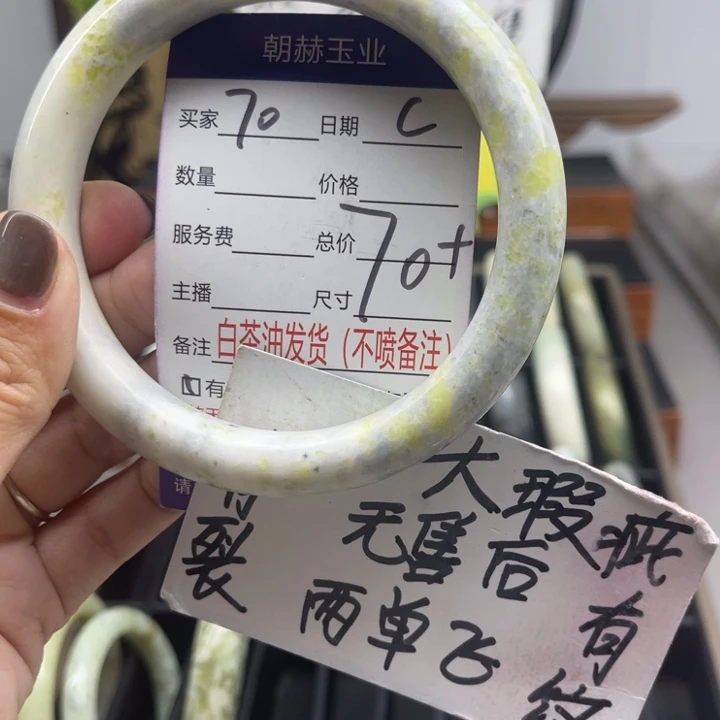 朝赫玉业
买家 70 日期 C
数量 价格
服务费 总价
70+
主播 尺寸
备注 白茶油发货（不喷备注）
有
请
大瑕疵有
无售后
两单飞
裂